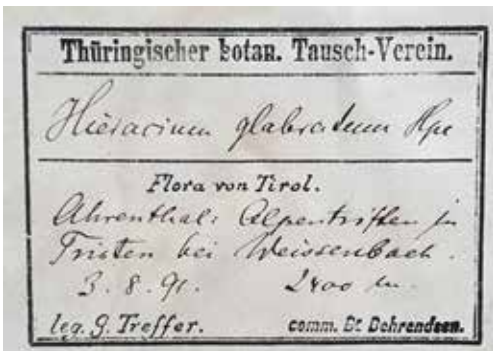 Thüringischer botan. Tausch-Verein.
Hieracium glabratum Hpe
Flora von Tirol.
Ahrenthal: Alpentriften in
Tristen bei Weissenbach.
3. 8. 91. 2400 m.
leg. G. Treffer. comm. Dr Behrendsen.